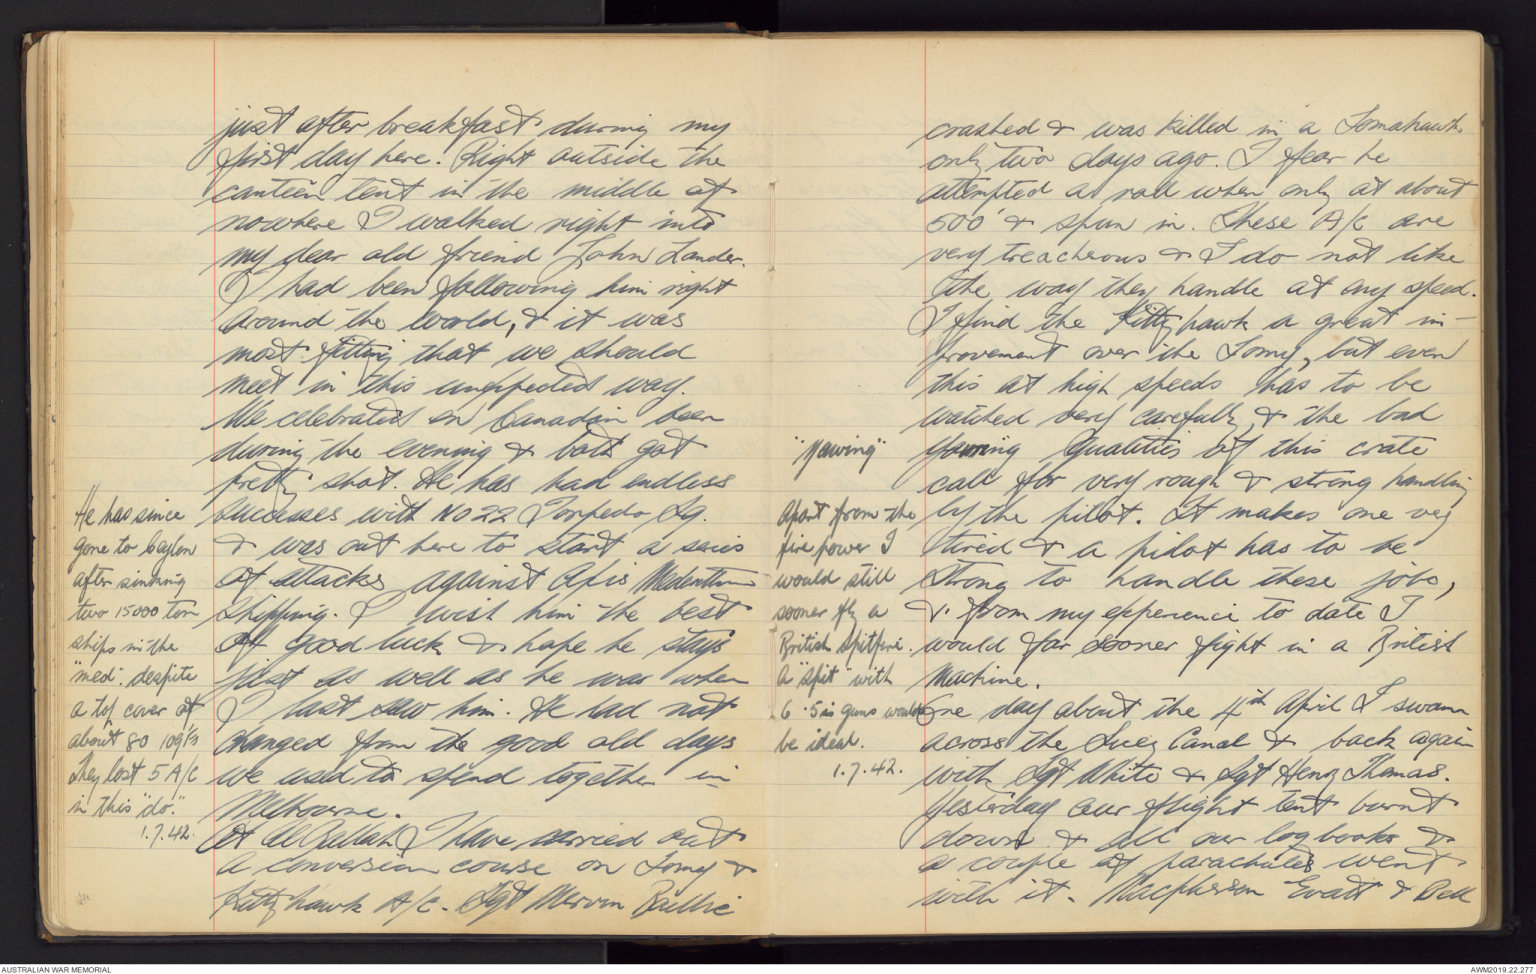 just after breakfast during my
first day here. Right outside the
canteen tent in the middle of
nowhere I walked right into
my dear old friend John Lander.
I had been following him right
around the world, & it was
most fitting that we should
meet in this unexpected way.
We celebrated on Canadian beer
during the evening & both got
pretty shot. He has had endless
successes with No 22 Torpedo Sq.
& was out here to start a series
of attacks against Axis
shipping. I wish him the best
of good luck & hope he stays
just as well as he was when
I last saw him. He had not
changed from the good old days
we used to spend together in
Melbourne.
At I have carried out
a conversion course on Tomy &
Kittyhawk A/C. Sgt Mervin Baillie
He has since
gone to Ceylon
after sinking
two 15000 ton
ships in the
"med". despite
a top cover of
about 80 109F's
They lost 5 A/C
in this "do."
1.7.42.
crashed & was killed in a Tomahawk
only two days ago. I fear he
attempted a roll when only at about
500' & spun in. These A/C are
very treacherous & I do not like
the way they handle at any speed.
I find the Kittyhawk a great im-
provement over the Tomy, but even
this at high speeds has to be
watched very carefully, & the bad
yawing qualities of this crate
call for very rough & strong handling
by the pilot. It makes one very
tired & a pilot has to be
strong to handle these jobs,
& from my experience to date I
would far sooner fight in a British
Machine.
One day about the 4th April I swam
across the Suez Canal & back again
with Sgt White & Sgt Henry Thomas.
Yesterday our flight tent burnt
down & all our log books &
a couple of parachutes went
with it. Macpherson Evatt & Bell
"yawing"
Apart from the
fire power I
would still
sooner fly a
British Spitfire.
A "Spit" with
6 .5in guns would
be ideal.
1.7.42.
AUSTRALIAN WAR MEMORIAL
AWM2019.22.277